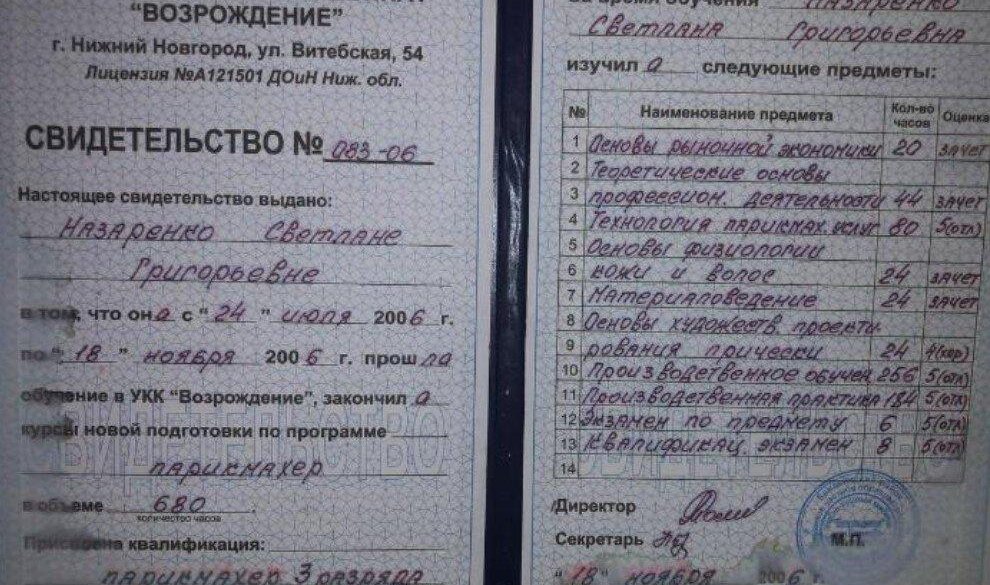 “ВОЗРОЖДЕНИЕ”
г. Нижний Новгород, ул. Витебская, 54
Лицензия №А121501 ДОиН Ниж. обл.
СВИДЕТЕЛЬСТВО № 083-06
Настоящее свидетельство выдано:
Назаренко Светлане
Григорьевне
в том, что она с “24” июля 2006 г.
по “18” ноября 2006 г. прошла
обучение в УКК “Возрождение”, закончила
курсы новой подготовки по программе
парикмахер
в объеме 680
количество часов
Присвоена квалификация:
парикмахер 3 разряда
За время обучения Назаренко
Светлана Григорьевна
изучила следующие предметы:
№ Наименование предмета Кол-во часов Оценка
1 Основы рыночной экономики 20 зачет
2 Теоретические основы
3 профессион. деятельности 44 зачет
4 Технология парикмах. услуг 80 5(отл)
5 Основы физиологии
6 кожи и волос 24 зачет
7 Материаловедение 24 зачет
8 Основы художеств. проекти-
9 рования прически 24 4(хор)
10 Производственное обучен 256 5(отл)
11 Производственная практика 184 5(отл)
12 Экзамен по предмету 6 5(отл)
13 Квалификац. экзамен 8 5(отл)
14
Директор
Секретарь
М.П.
“18” ноября 2006 г
СВИДЕТЕЛЬСТВО